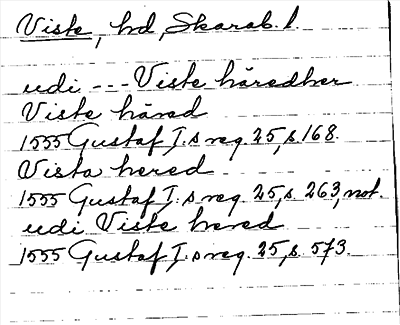 Viste, hd, Skarab. l.
udi --- Viste häredher
Viste häradh
1555 Gustaf I:s reg. 25, s. 168.
Vista hered
1555 Gustaf I:s reg. 25, s. 263, not.
udi Viste hered
1555 Gustaf I:s reg. 25, s. 573.